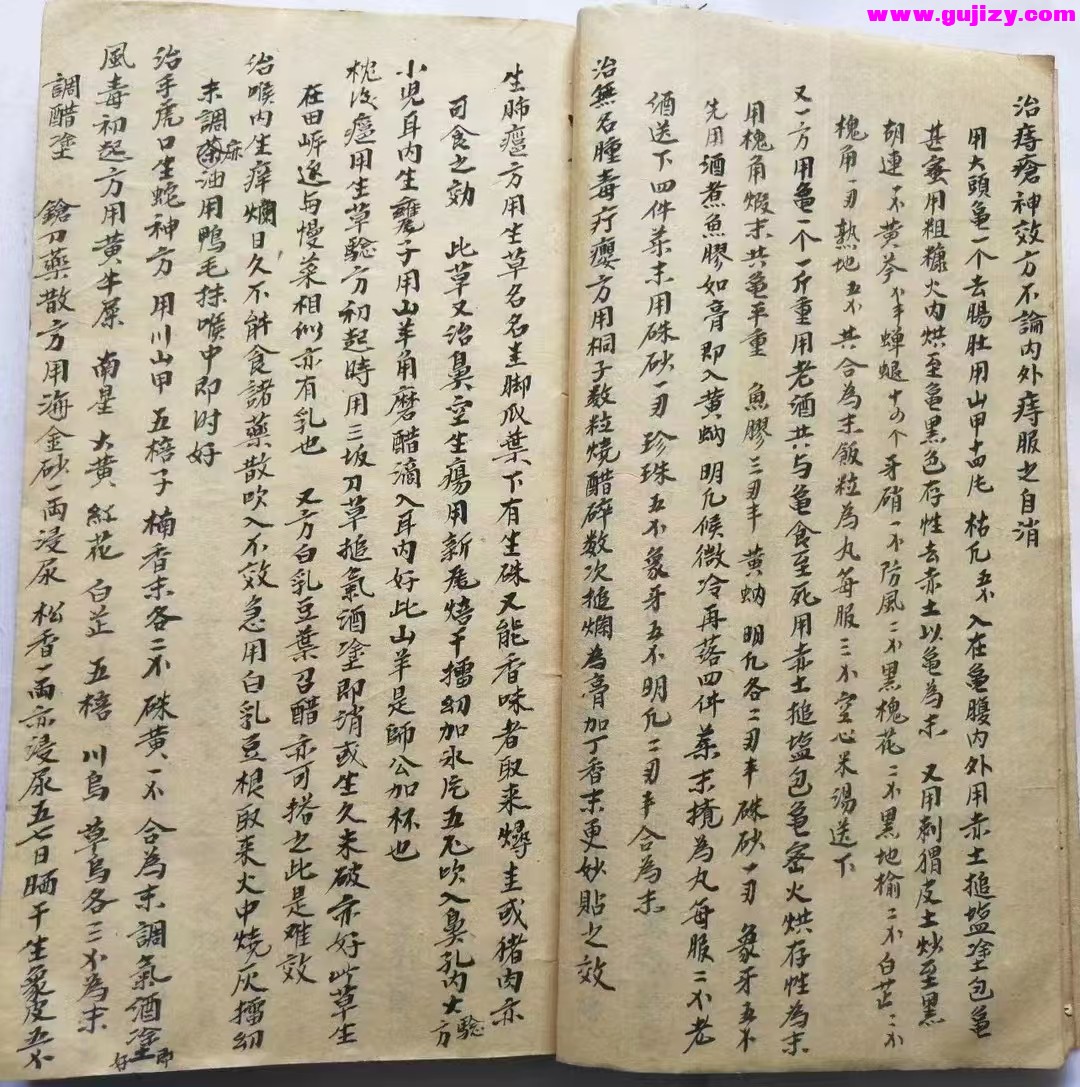 www.gujizy.com
治痔瘡神效方不論內外痔服之自消
用大頭龜一个去腸肚用山甲十四片 枯凡五不入在龜腹內外用赤土搥塩塗包龜
甚蜜用粗糠火內烘至龜黑色存性去赤土以龜為末 又用刺猬皮土炒至黑
胡連一不黃芩 不半蟬蜕十四个牙硝一不防風二不黑槐花二不黑地榆二不白芷二不
槐角一刃熟地五不共合為末飯粒為丸每服三不空心米湯送下
又一方用龜一个一斤重用老酒共与龜食至死用赤土搥塩包龜密火烘存性為末
用槐角煅末共龜平重 魚膠三刃半 黃蚋 明凡各二刃半 硃砂一刃 象牙五不
先用酒煮魚膠如膏即入黃蚋 明凡候微冷再落四件藥末撓為丸每服二不老
酒送下四件藥末用硃砂一刃 珍珠五不象牙五不明凡二刃半合為末
治無名腫毒疔癭方用桐子数粒燒醋碎数次搥爛為膏加丁香末更妙貼之效
生肺癰方用生草名名圭脚瓜葉下有生硃又能香味者取来燖圭或猪肉亦
可食之効 此草又治鼻空生瘍用新尾焙干擂幼加氷片五瓦吹入鼻孔內大驗方
小児耳內生甕子用山羊角磨醋滴入耳內好此山羊是師公加杯也
枕後癰用生草騐方初起時用三坂刀草搥氣酒塗即消或生久未破亦好此草生
在田岸邊与慢菜相似亦有乳也 又方白乳豆葉召醋亦可搭之此是难效
治喉內生痒爛日久不能食諸藥散吹入不效急用白乳豆根取来火中燒灰擂幼
末調茶油用鴨毛抹喉中即时好
治手虎口生蛇神方 用川山甲 五棓子 楠香末各二不 硃黃一不 合為末調氣酒塗即好
風毒初起方用黃牛屎 南星 大黃 紅花 白芷 五棓 川烏 草烏各三不為末
調醋塗 鎗刀藥散方用海金砂一両浸尿 松香一両亦浸尿五七日晒干生象皮五不